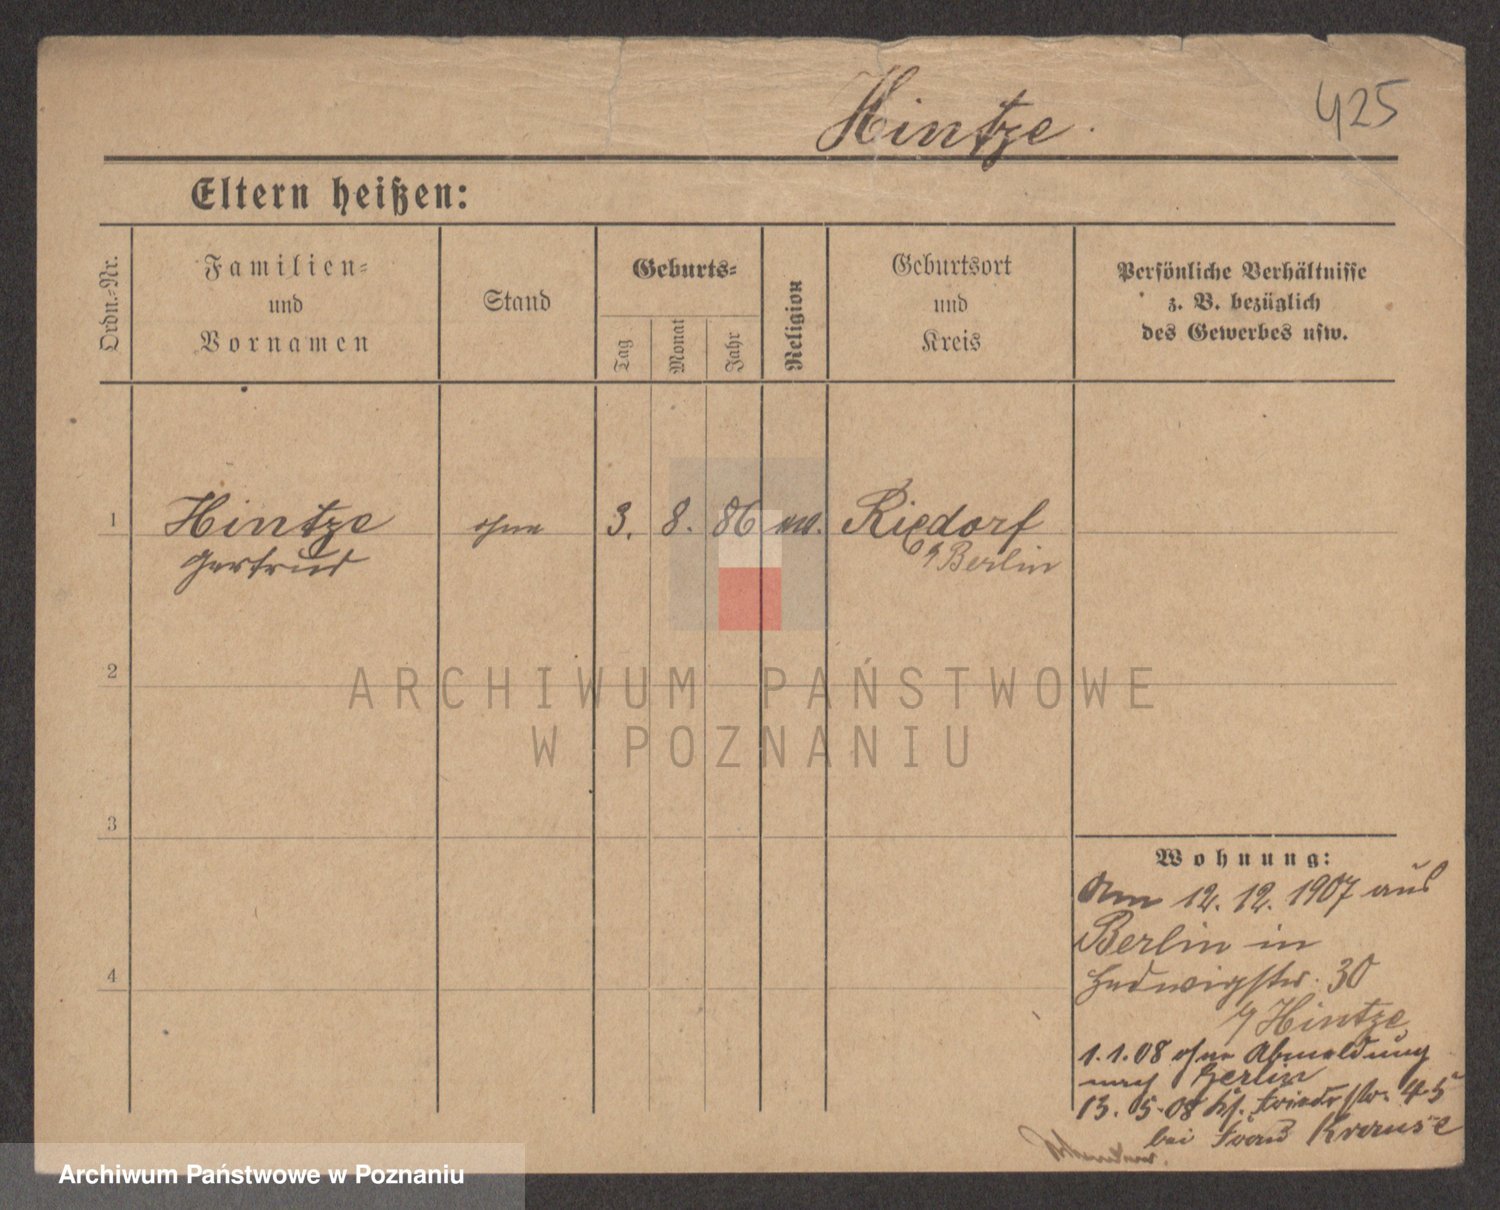 Hintze.
425
Eltern heißen:
Ordn.-Nr.
Familien-
und
Vornamen
Stand
Geburts-
Tag
Monat
Jahr
Religion
Geburtsort
und
Kreis
Persönliche Verhältnisse
z. B. bezüglich
des Gewerbes usw.
1
Hintze
Gertrud
ohne
3.
8.
86
ev.
Rixdorf
b/ Berlin
2
3
4
Wohnung:
Am 12. 12. 1907 aus
Berlin in
Hedwigstr. 30
b/ Hintze
1.1.08 ohne Abmeldung
nach Berlin
13. 5. 08 Friedrstr. 45
bei Frau Krause
ARCHIWUM PAŃSTWOWE
W POZNANIU
Archiwum Państwowe w Poznaniu